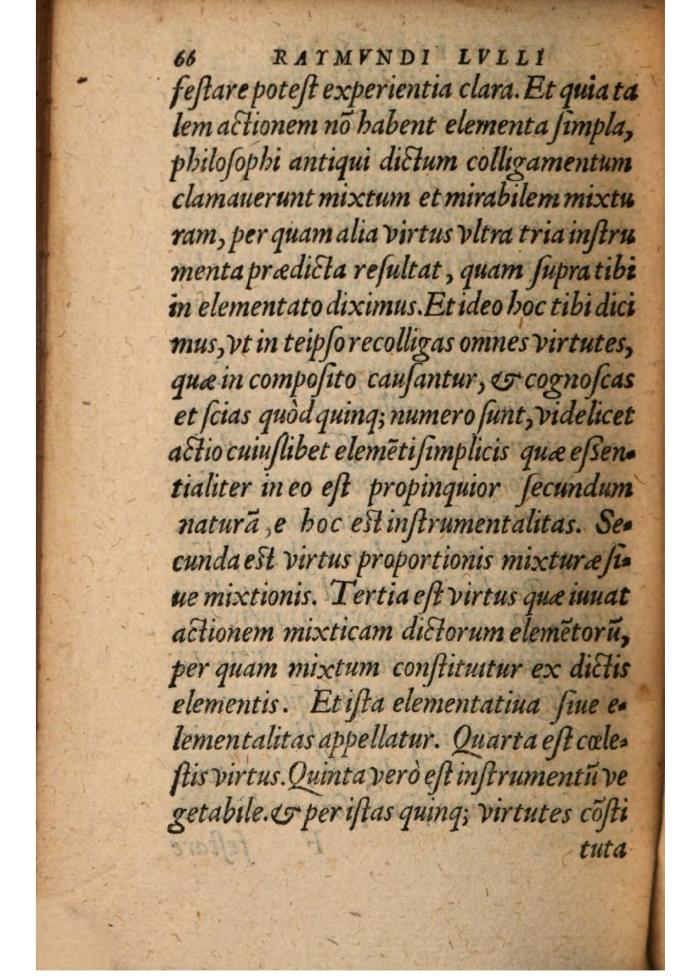 66 RAYMVNDI LVLLI
feſtare poteſt experientia clara. Et quia ta
lem actionem nō habent elementa ſimpla,
philoſophi antiqui dictum colligamentum
clamauerunt mixtum et mirabilem mixtu
ram, per quam alia virtus vltra tria inſtru
menta prædicta reſultat, quam ſupra tibi
in elementato diximus. Et ideo hoc tibi dici
mus, vt in teipſo recolligas omnes virtutes,
quæ in compoſito cauſantur, & cognoſcas
et ſcias quòd quinq; numero ſunt, videlicet
actio cuiuſlibet elemēti ſimplicis quæ eſsen-
tialiter in eo eſt propinquior ſecundum
naturā, e hoc eſt inſtrumentalitas. Se-
cunda eſt virtus proportionis mixturæ ſi-
ue mixtionis. Tertia eſt virtus quæ iuuat
actionem mixticam dictorum elemētorū,
per quam mixtum conſtituitur ex dictis
elementis. Et iſta elementatiua ſiue e-
lementalitas appellatur. Quarta eſt cœle-
ſtis virtus. Quinta verò eſt inſtrumentū ve
getabile. & per iſtas quinq; virtutes cōſti
tuta